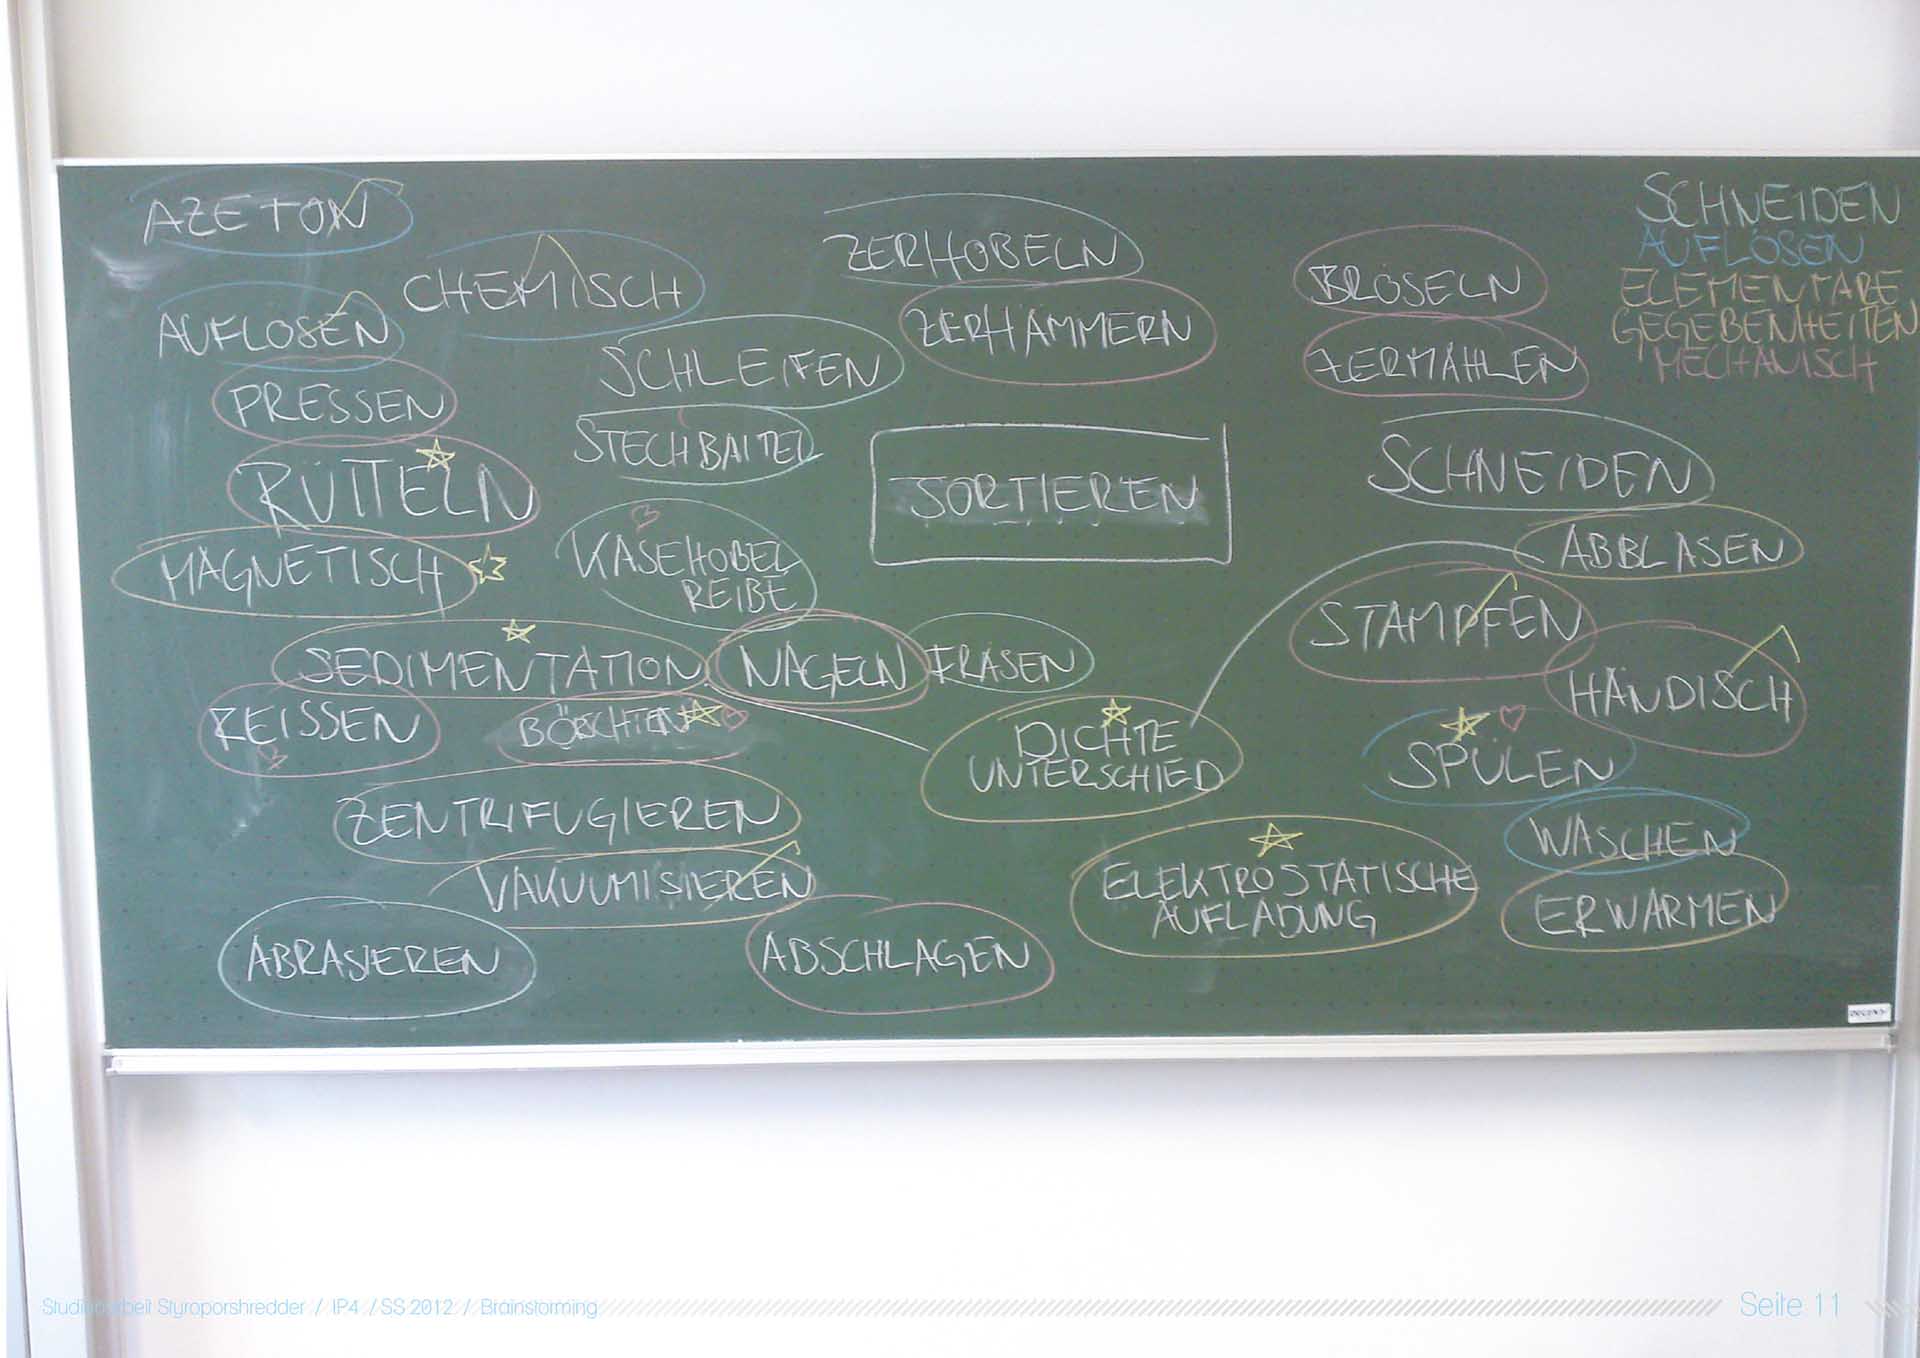 AZETON
CHEMISCH
AUFLÖSEN
PRESSEN
RÜTTELN
MAGNETISCH
SCHLEIFEN
STECHBAITEL
KÄSEHOBEL
REIBE
ZERHOBELN
ZERHÄMMERN
SORTIEREN
BRÖSELN
ZERMAHLEN
SCHNEIDEN
AUFLÖSEN
ELEMENTARE
GEGEBENHEITEN
MECHANISCH
SCHNEIDEN
ABBLASEN
STAMPFEN
HÄNDISCH
SEDIMENTATION
NAGELN
FRÄSEN
REISSEN
DICHTE
UNTERSCHIED
SPÜLEN
WASCHEN
ERWÄRMEN
ZENTRIFUGIEREN
VAKUUMISIEREN
ELEKTROSTATISCHE
AUFLADUNG
ABRASIEREN
ABSCHLAGEN
Studienarbeit Styroporshredder / IP4 / SS 2012 / Brainstorming
Seite 11